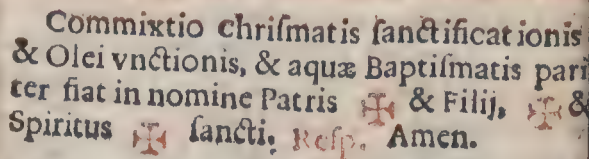 Commixtio chriſmatis ſanctificationis
& Olei vnctionis, & aquæ Baptiſmatis pari
ter fiat in nomine Patris ✠ & Filij, ✠ &
Spiritus ✠ ſancti. Reſp. Amen.